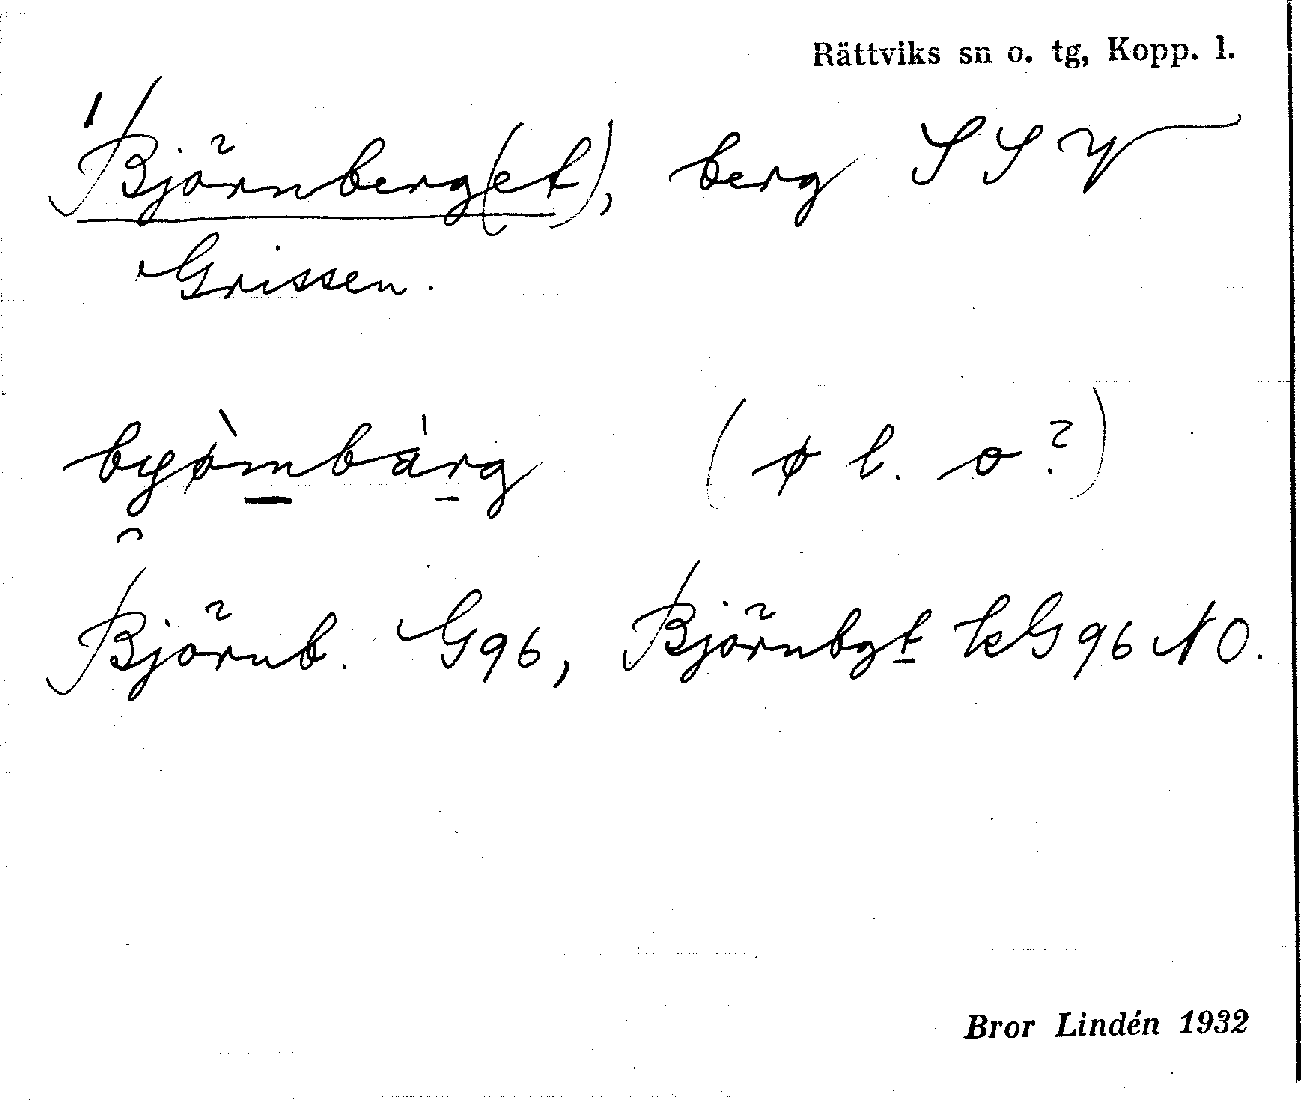 Rättviks sn o. tg, Kopp. l.
1/
Björnberg(et), berg SSV
Grissen.
byòmbàrg (ø l. o?)
Björnb. G96, Björnbgt kG96 NO.
Bror Lindén 1932